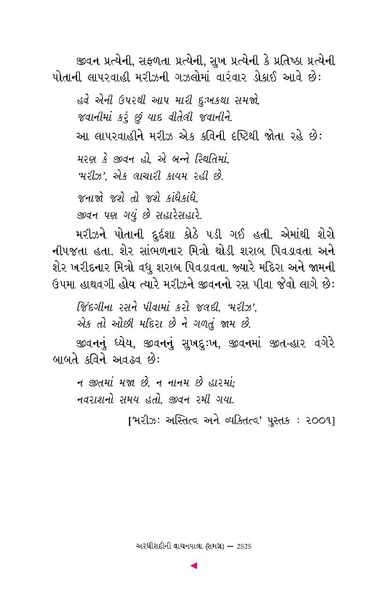 જીવન પ્રત્યેની, સફળતા પ્રત્યેની, સુખ પ્રત્યેની કે પ્રતિષ્ઠા પ્રત્યેની
પોતાની લાપરવાહી મરીઝની ગઝલોમાં વારંવાર ડોકાઈ આવે છે:
હવે એની ઉપરથી આપ મારી દુઃખકથા સમજો,
જવાનીમાં કરું છું યાદ વીતેલી જવાનીને.
આ લાપરવાહીને મરીઝ એક કવિની દૃષ્ટિથી જોતા રહે છે:
મરણ કે જીવન હો, એ બન્ને સ્થિતિમાં,
'મરીઝ', એક લાચારી કાયમ રહી છે.
જનાજો જશે તો જશે કાંધેકાંધે,
જીવન પણ ગયું છે સહારેસહારે.
મરીઝને પોતાની દુર્દશા કોઠે પડી ગઈ હતી. એમાંથી શેરો
નીપજતા હતા. શેર સાંભળનાર મિત્રો થોડી શરાબ પિવડાવતા અને
શેર ખરીદનાર મિત્રો વધુ શરાબ પિવડાવતા. જ્યારે મદિરા અને જામની
ઉપમા હાથવગી હોય ત્યારે મરીઝને જીવનનો રસ પીવા જેવો લાગે છે:
જિંદગીના રસને પીવામાં કરો જલદી, 'મરીઝ',
એક તો ઓછી મદિરા છે ને ગળતું જામ છે.
જીવનનું ધ્યેય, જીવનનું સુખદુઃખ, જીવનમાં જીત-હાર વગેરે
બાબતે કવિને અવઢવ છે:
ન જીતમાં મજા છે, ન નાનમ છે હારમાં;
નવરાશનો સમય હતો, જીવન રમી ગયા.
['મરીઝ: અસ્તિત્વ અને વ્યક્તિત્વ' પુસ્તક : ૨૦૦૧]
અરધીસદીની વાચનયાત્રા (સમગ્ર) — 2525